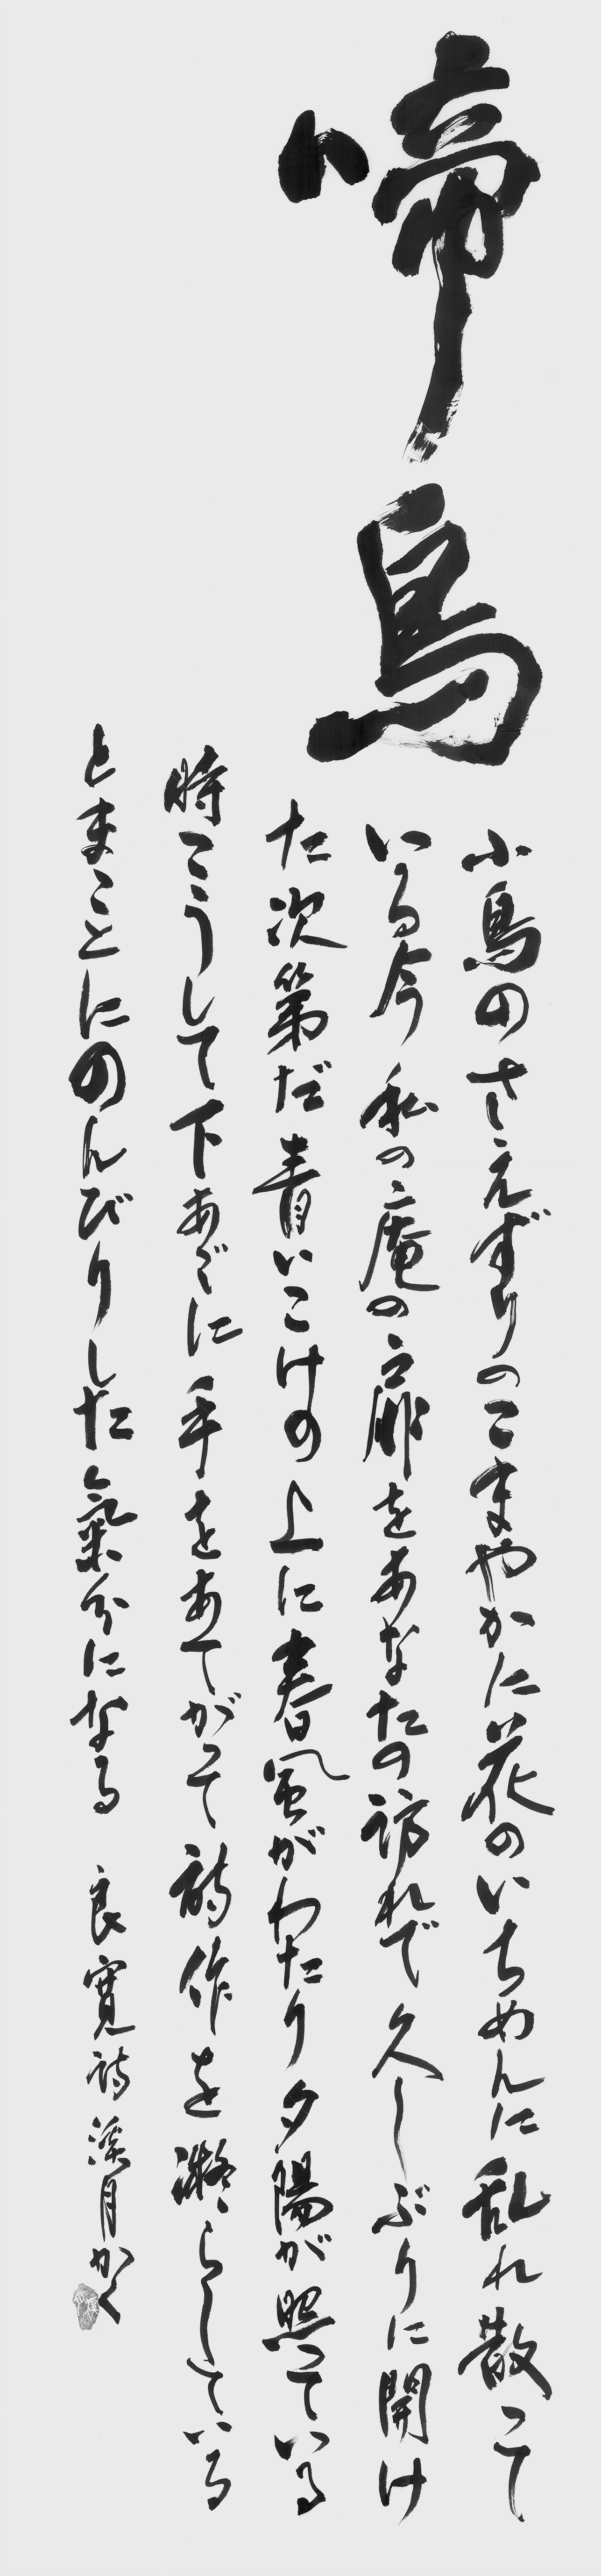 啼鳥
小鳥のさえずりのこまやかに花のいちめんに乱れ散って
いる今 私の庵の扉をあなたの訪れで久しぶりに開け
た次第だ 青いこけの上に春風がわたり夕陽が照っている
時こうして下あごに手をあてがって詩作を凝らしている
とまことにのんびりした氣分になる 良寛詩 溪月かく